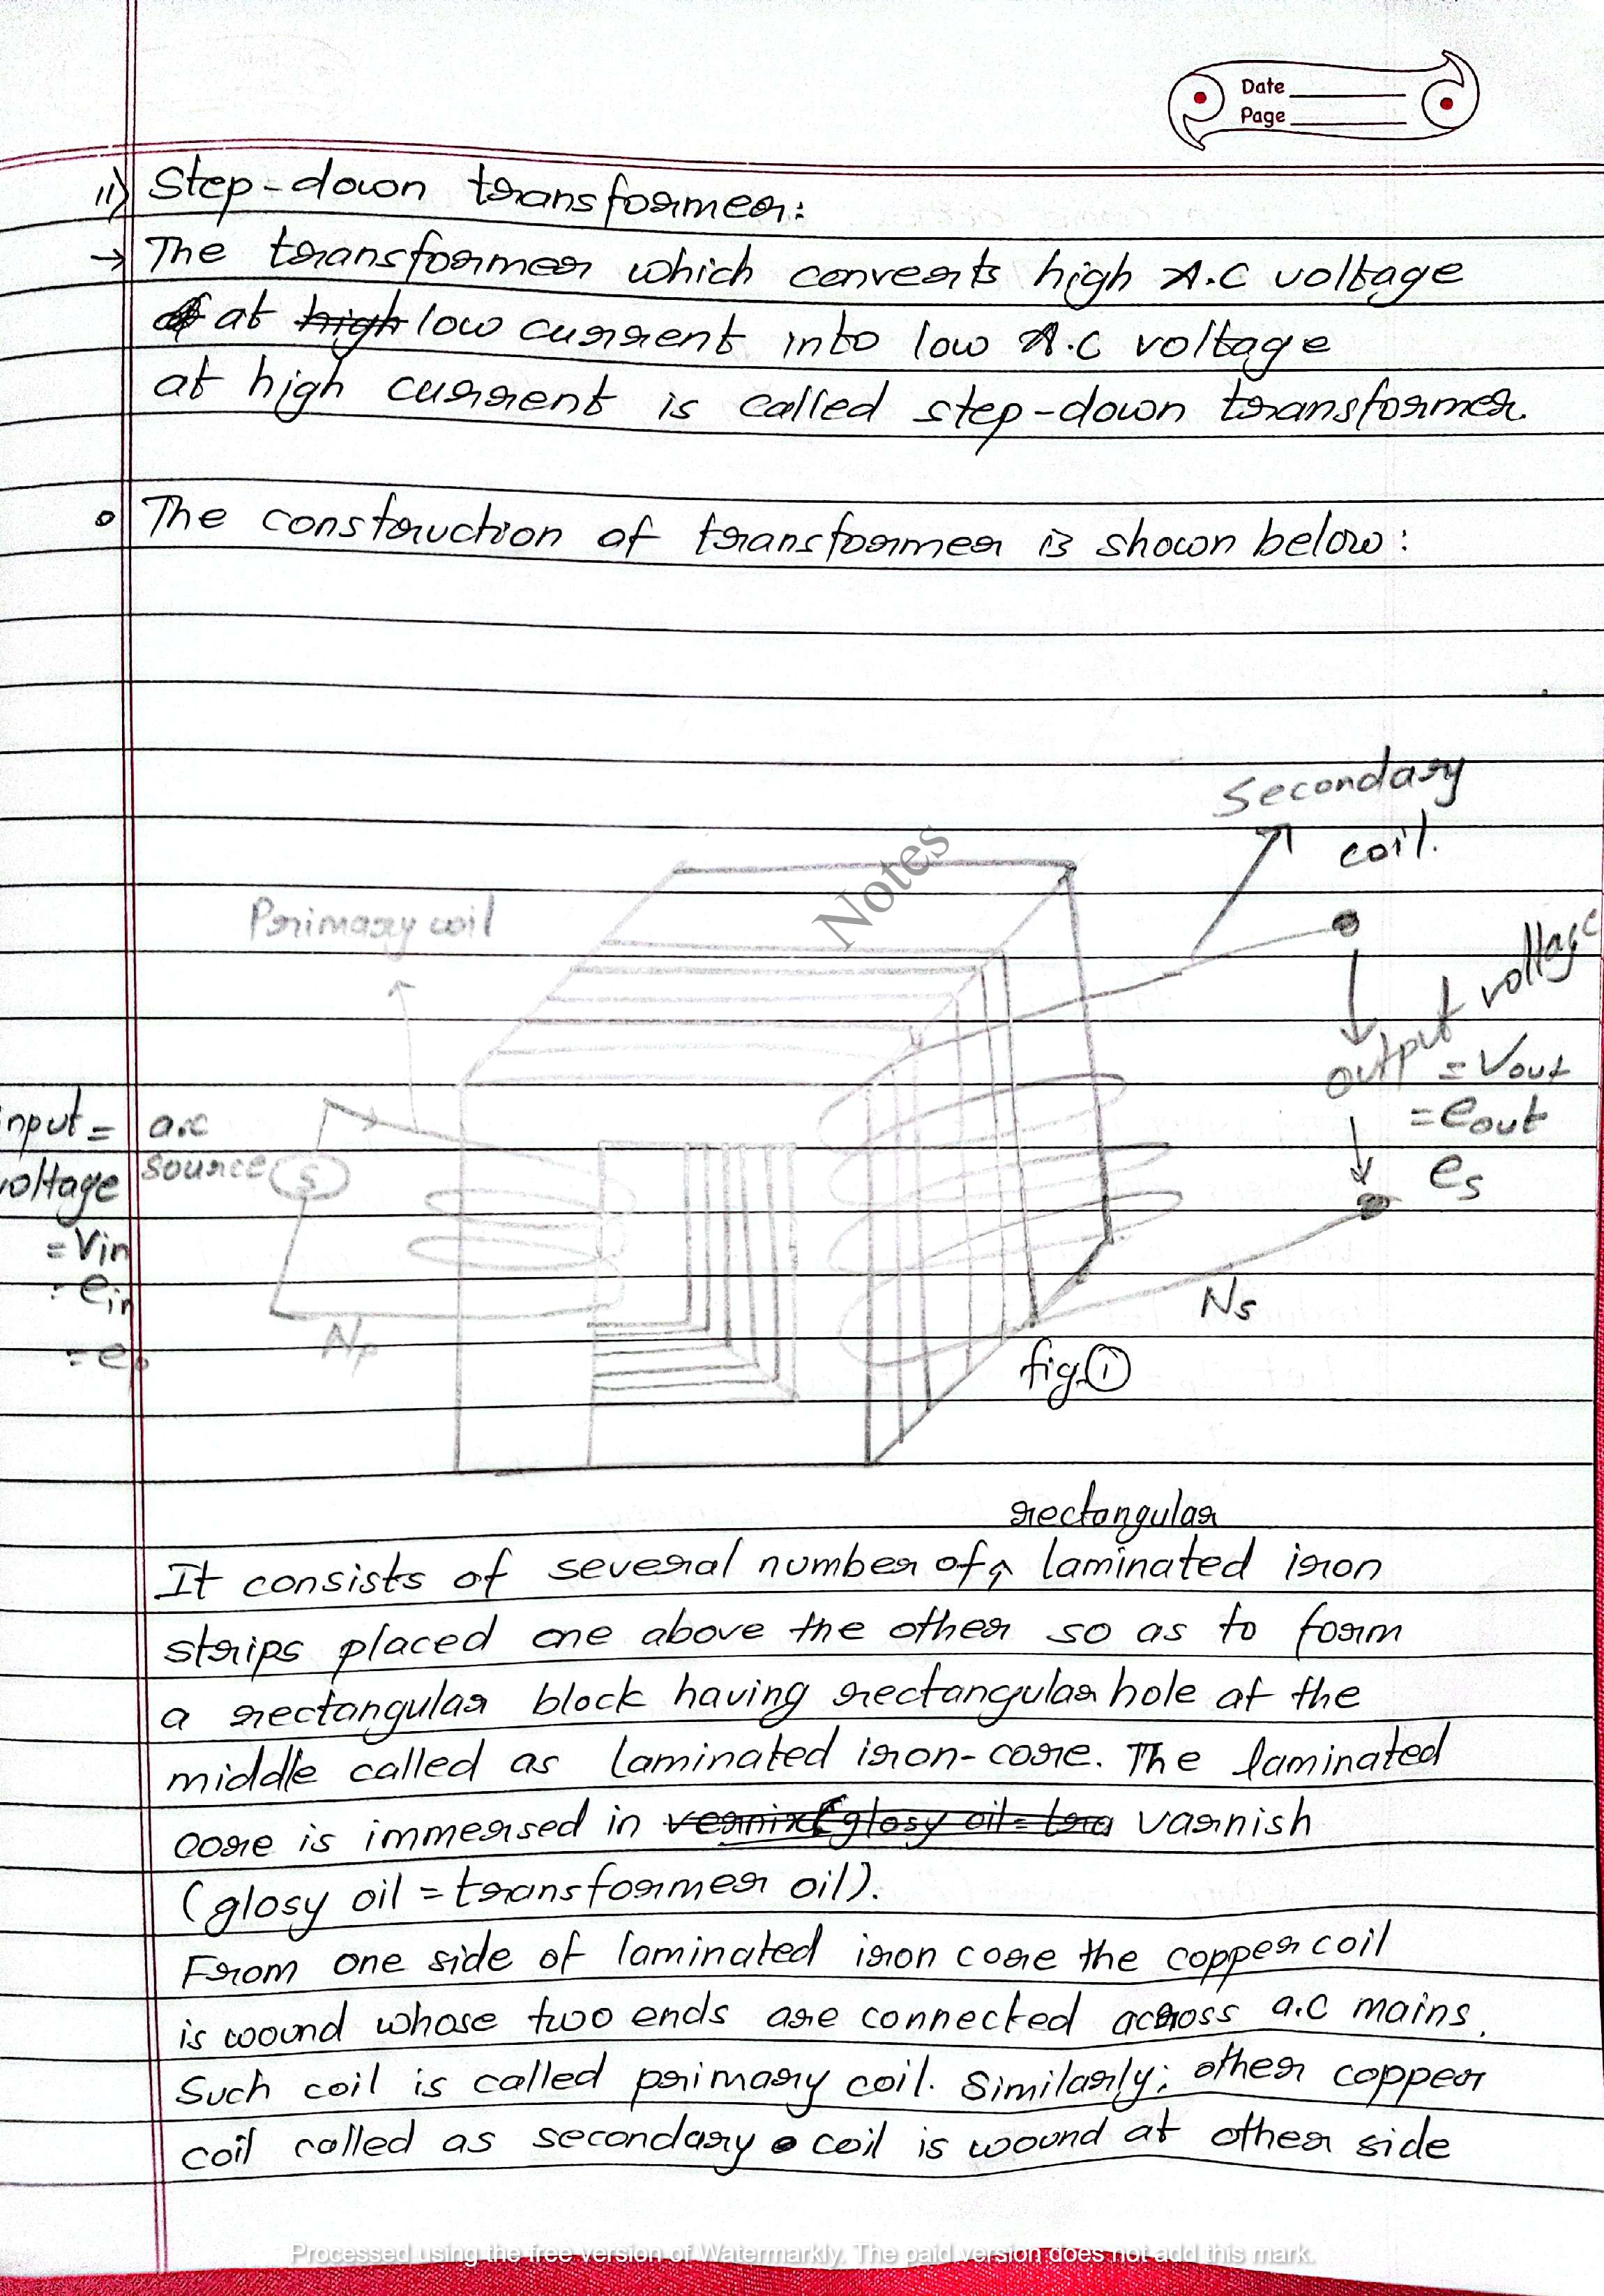 Date
Page
ii) Step-down transformer:
→ The transformer which converts high A.C voltage
at high low current into low A.C voltage
at high current is called step-down transformer.
• The construction of transformer is shown below:
Secondary
coil.
Notes
Primary coil
output voltage
= Vout
= eout
es
input = a.c
voltage source S
= Vin
= ein
= ep
Np
Ns
fig. 1
rectangular
It consists of several number of laminated iron
strips placed one above the other so as to form
a rectangular block having rectangular hole at the
middle called as laminated iron-core. The laminated
core is immersed in glosy oil = varnish
(glosy oil = transformer oil).
From one side of laminated iron core the copper coil
is wound whose two ends are connected across a.c mains.
Such coil is called primary coil. Similarly; other copper
coil called as secondary coil is wound at other side
Processed using the free version of Watermarkly. The paid version does not add this mark.